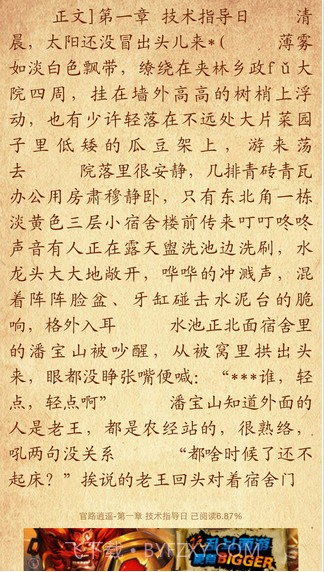 正文]第一章 技术指导日 清
晨，太阳还没冒出头儿来*( 薄雾
如淡白色飘带，缭绕在夹林乡政fǔ大
院四周，挂在墙外高高的树梢上浮
动，也有少许轻落在不远处大片菜园
子里低矮的瓜豆架上，游来荡
去 院落里很安静，几排青砖青瓦
办公用房肃穆静卧，只有东北角一栋
淡黄色三层小宿舍楼前传来叮叮咚咚
声音有人正在露天盥洗池边洗刷，水
龙头大大地敞开，哗哗的冲溅声，混
着阵阵脸盆、牙缸碰去水泥台的脆
响，格外入耳 水池正北面宿舍里
的潘宝山被吵醒，从被窝里拱出头
来，眼都没睁张嘴便喊：“***谁，轻
点，轻点啊” 潘宝山知道外面的
人是老王，都是农经站的，很熟络，
吼两句没关系 “都啥时候了还不
起床？”挨说的老王回头对着宿舍门
官路逍遥-第一章 技术指导日 已阅读6.87%
BIGGER